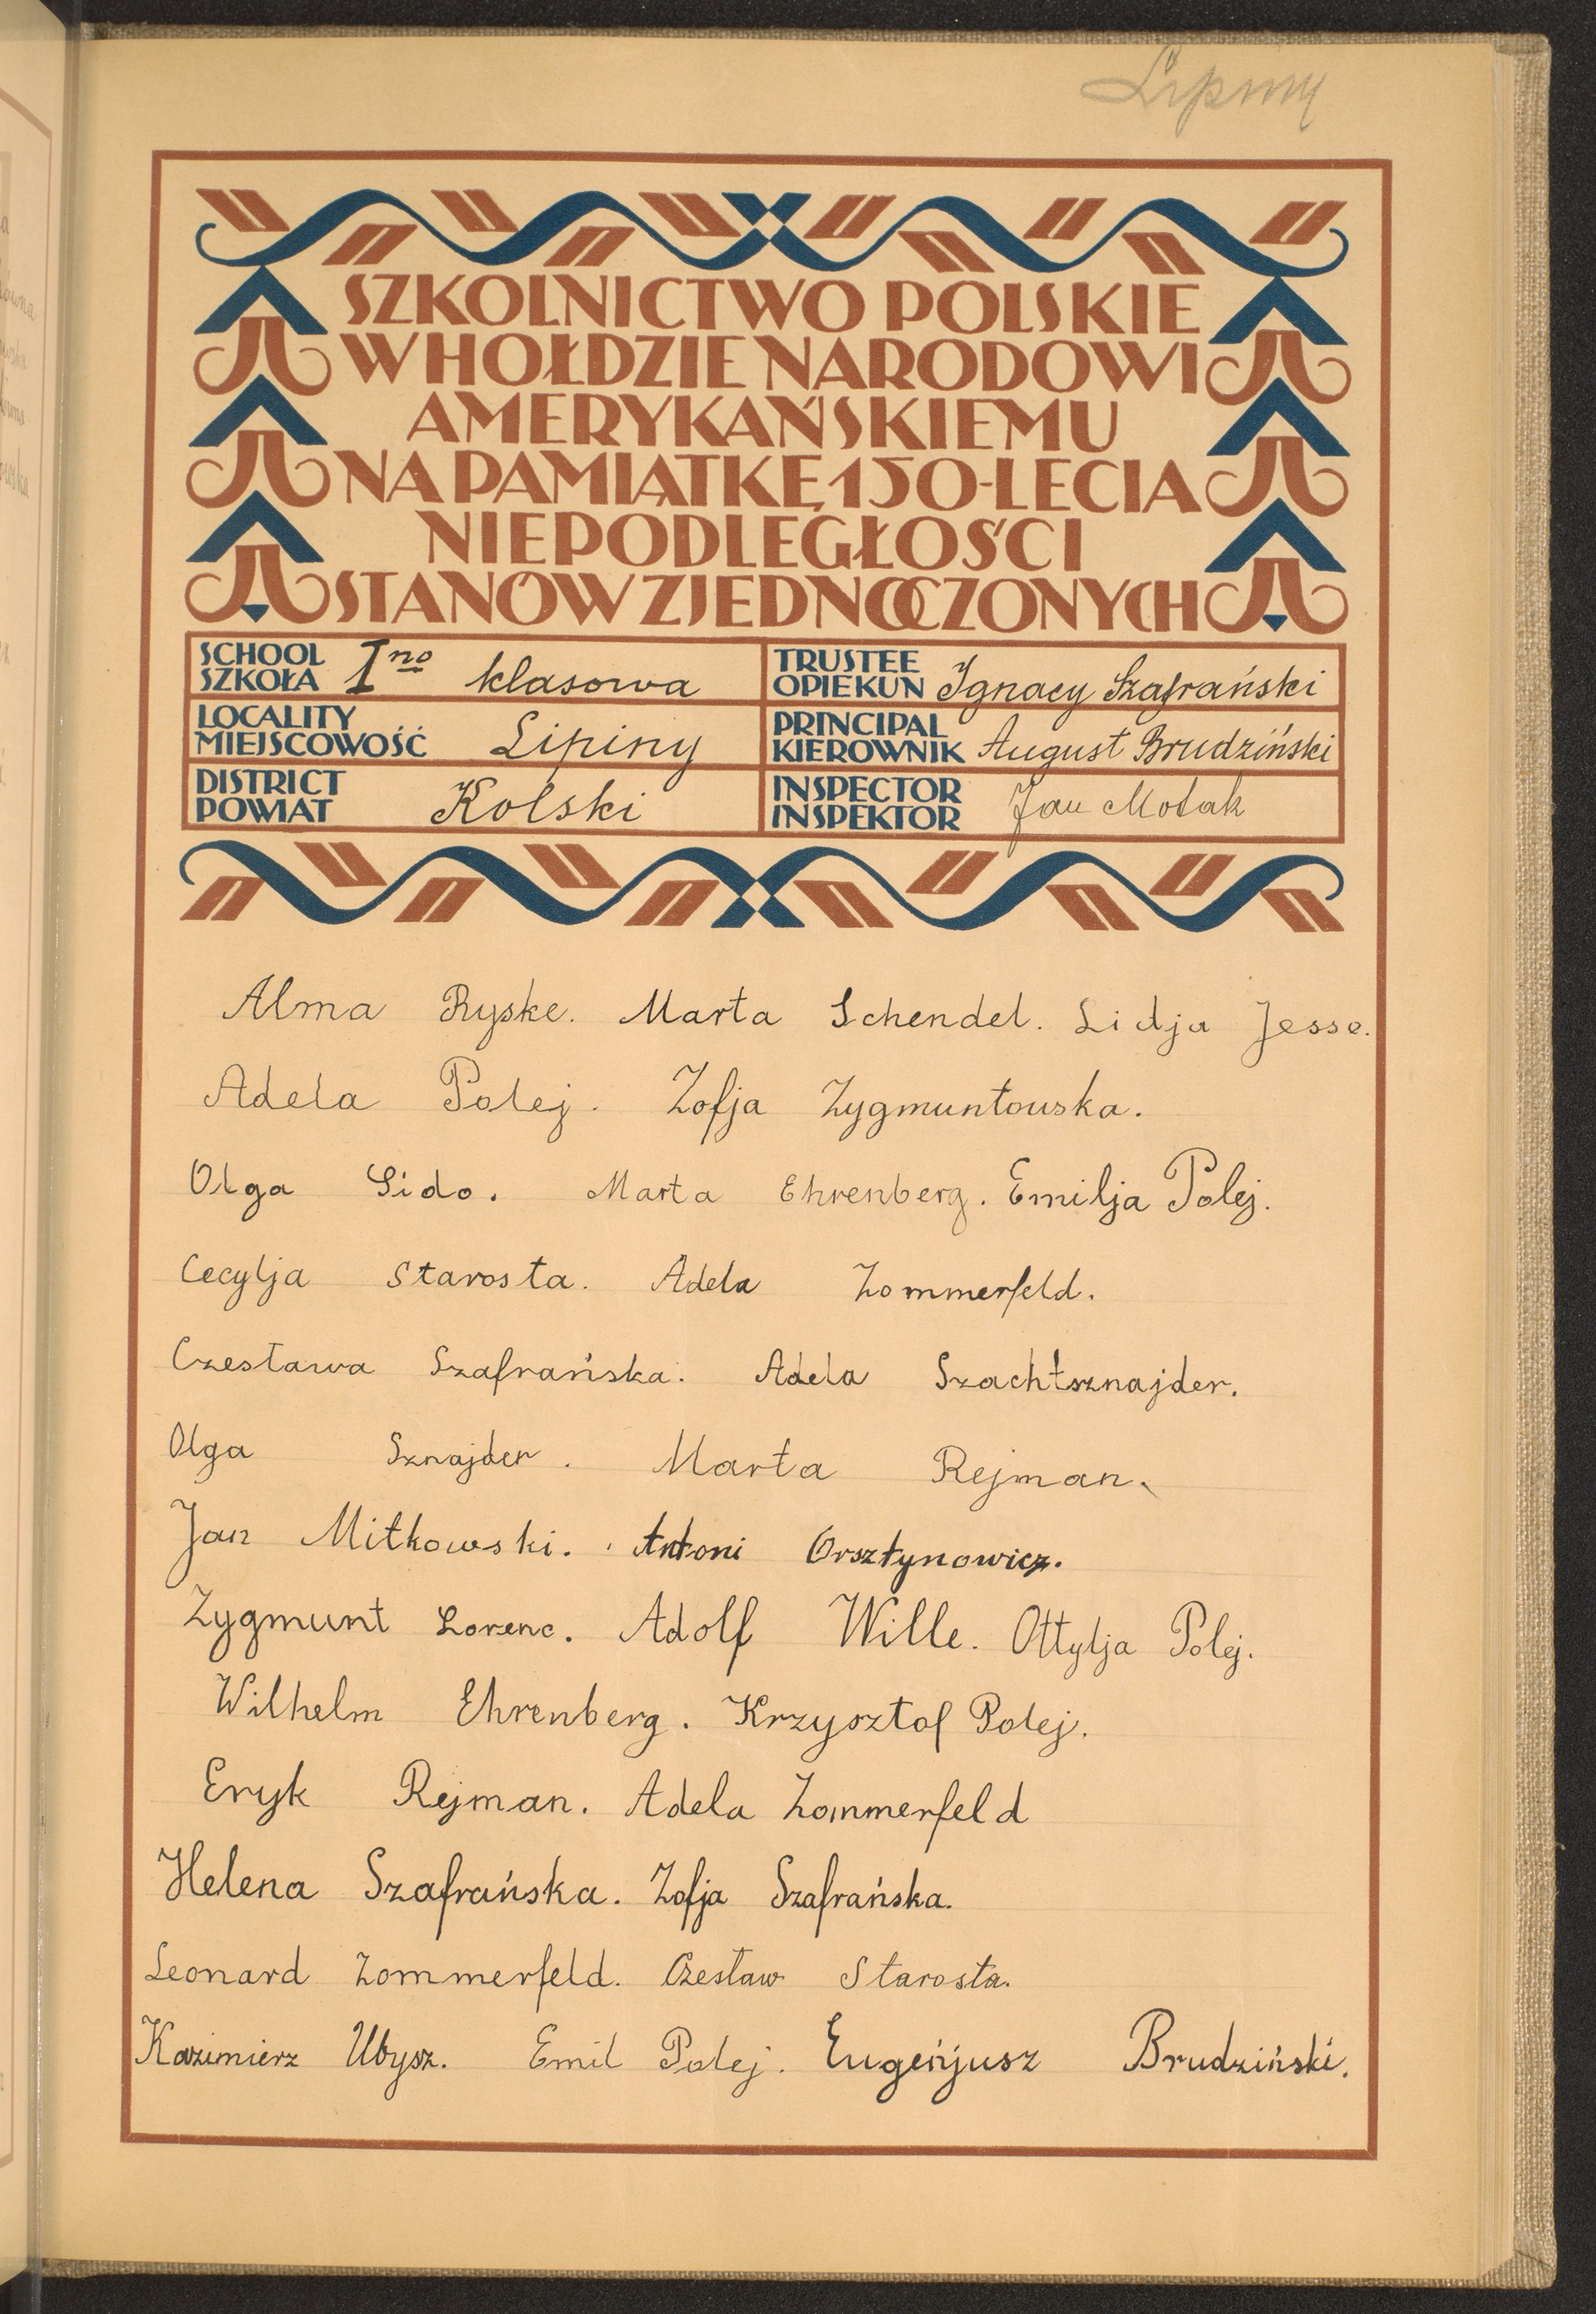 Lipiny
SZKOLNICTWO POLSKIE
W HOŁDZIE NARODOWI
AMERYKAŃSKIEMU
NA PAMIĄTKĘ 150-LECIA
NIEPODLEGŁOŚCI
STANÓW ZJEDNOCZONYCH
SCHOOL
SZKOŁA
Ino klasowa
TRUSTEE
OPIEKUN
Ignacy Szafrański
LOCALITY
MIEJSCOWOŚĆ
Lipiny
PRINCIPAL
KIEROWNIK
August Brudziński
DISTRICT
POWIAT
Kolski
INSPECTOR
INSPEKTOR
Jan Motak
Alma Ryske. Marta Schendel. Lidja Jesse.
Adela Polej. Zofja Zygmuntowska.
Olga Lido. Marta Ehrenberg. Emilja Polej.
Cecylja Starosta. Adela Zommerfeld.
Czesława Szafrańska. Adela Szachtsznajder.
Olga Sznajder. Marta Rejman.
Jan Mitkowski. Antoni Orsztynowicz.
Zygmunt Lorenc. Adolf Wille. Ottylja Polej.
Wilhelm Ehrenberg. Krzysztof Polej.
Eryk Rejman. Adela Zommerfeld
Helena Szafrańska. Zofja Szafrańska.
Leonard Zommerfeld. Czesław Starosta.
Kazimierz Ubysz. Emil Polej. Eugenjusz Brudziński.